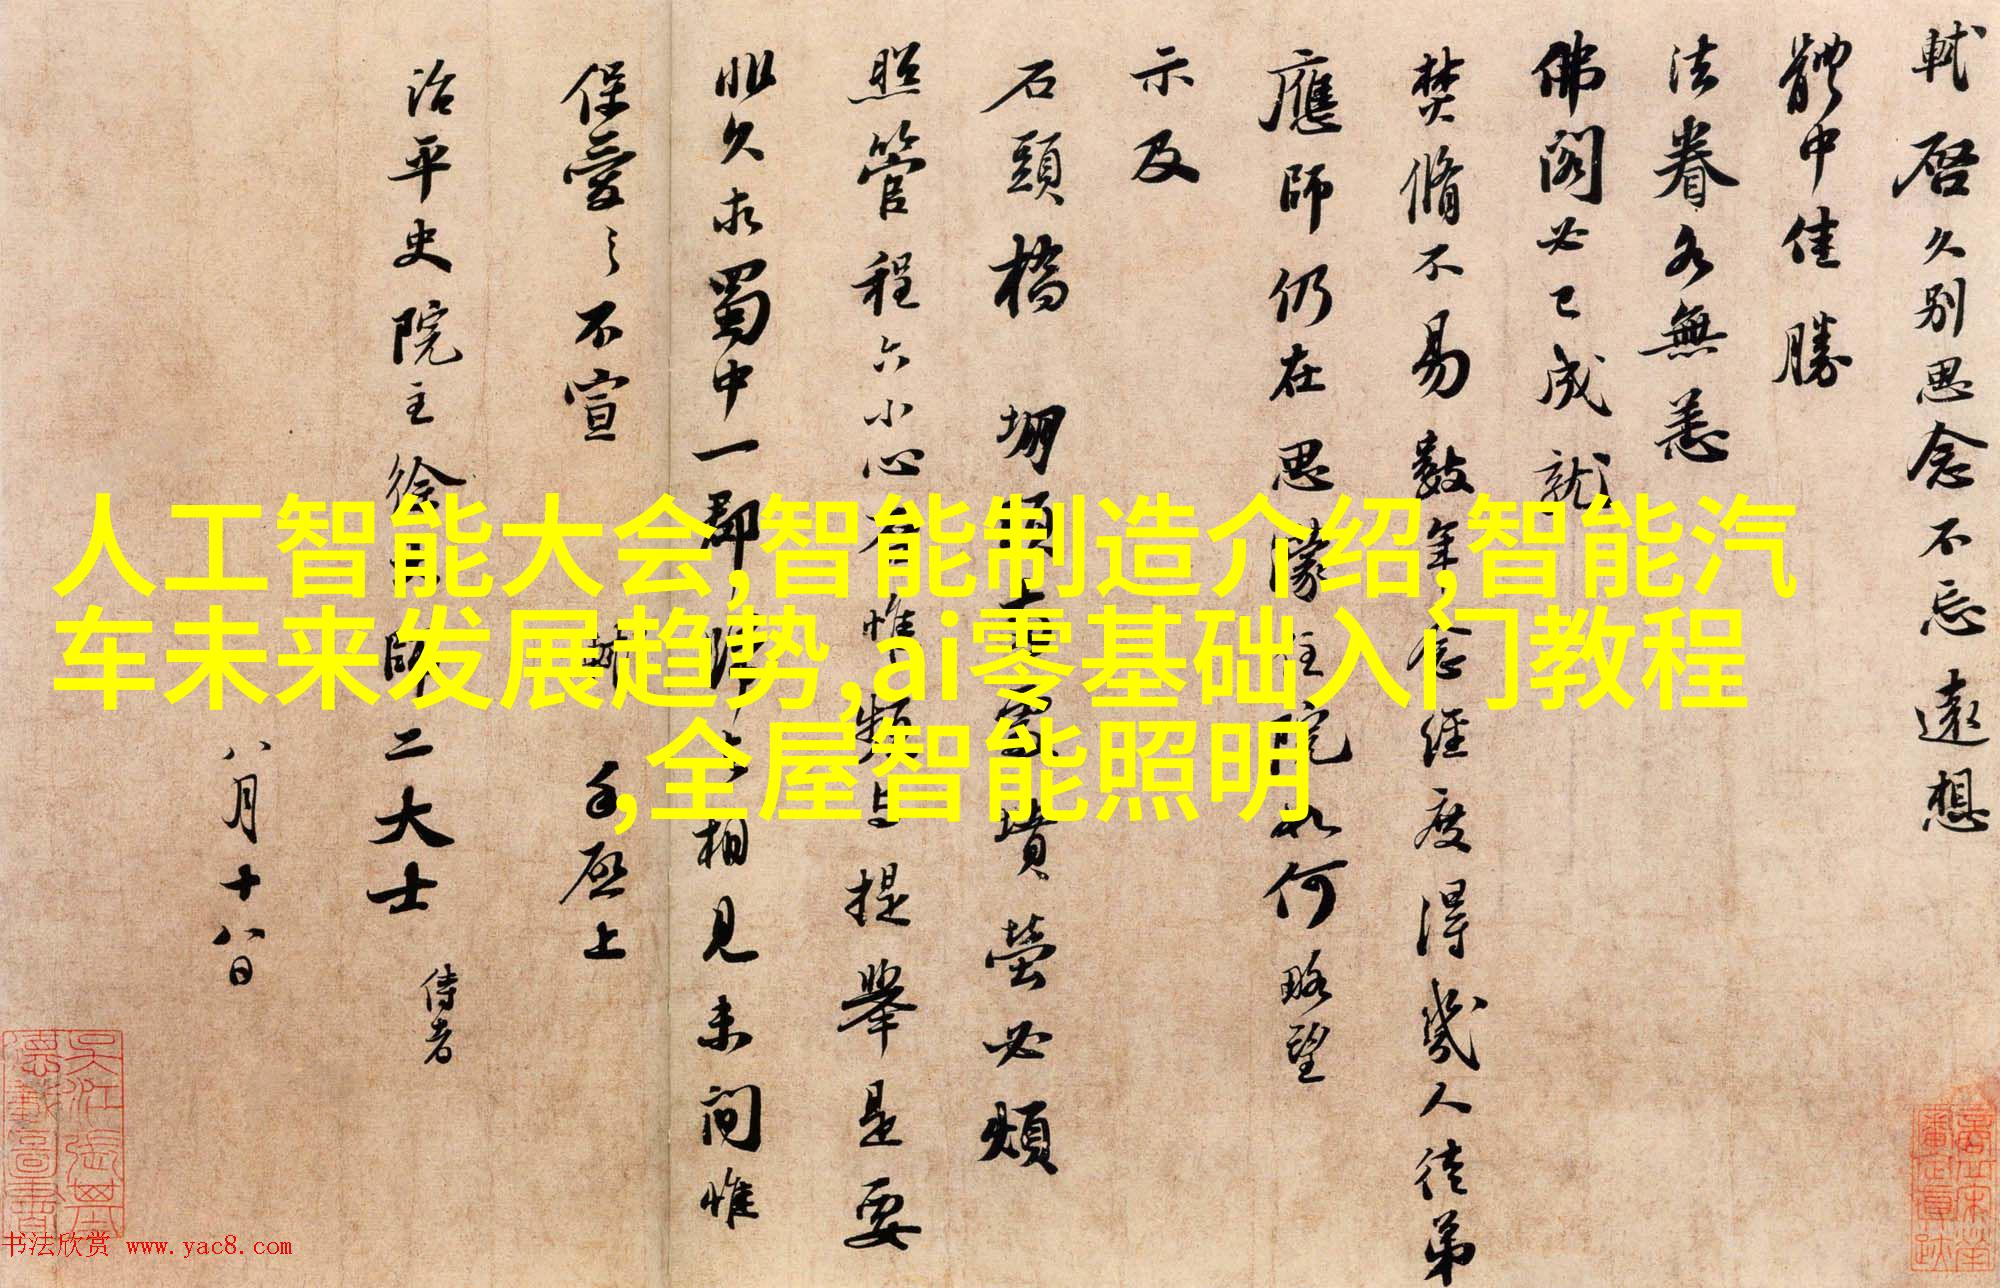 軾啓久别思念不忘遠想
體中佳勝
法眷各無恙
佛閣必已成就
焚脩不易數年念經度得幾人徒弟
應師仍在思濛住院如何略望
示及
石頭橋 堋頭 墳塋必煩
照管程六小心否惟頻与提舉是要
非久求蜀中一郡 相見未間惟
保愛之不宣
手啓上
治平史院主徐 師二大士 侍者
八月十八日
人工智能大会,智能制造介绍,智能汽
车未来发展趋势,ai零基础入门教程
,全屋智能照明
书法欣赏 www.yac8.com